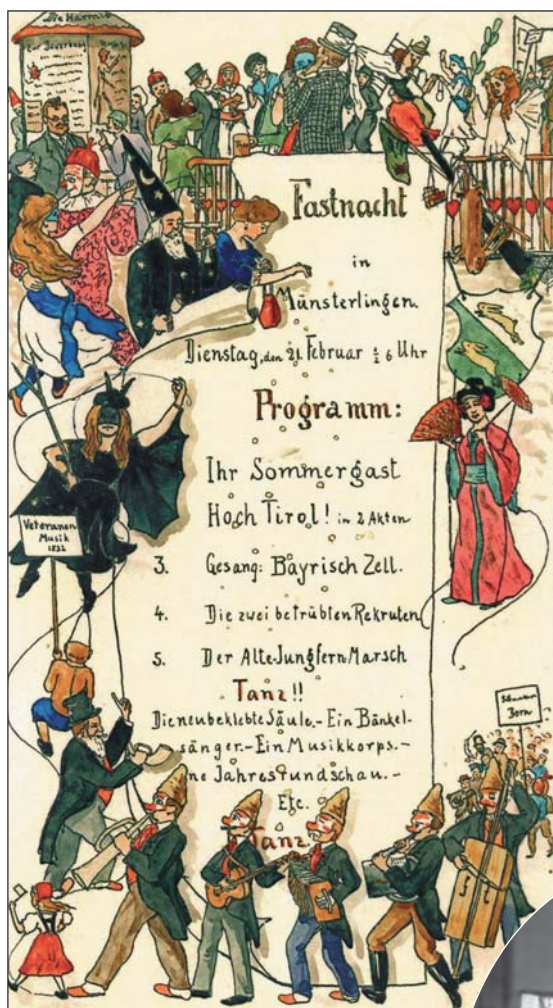 Die Harmlo
Zur Bewerbung
Fastnacht
in
Münsterlingen.
Dienstag, den 21. Februar ½ 6 Uhr
Programm:
Ihr Sommergast
Hoch Tirol! in 2 Akten
3. Gesang: Bayrisch Zell.
4. Die zwei betrübten Rekruten
5. Der Alte-Jungfern-Marsch
Tanz!!
Die neubeklebte Säule.- Ein Bänkel-
sänger.- Ein Musikkorps.-
ne Jahresrundschau.-
Etc.
Tanz
Veteranen
Musik
1832
Bern